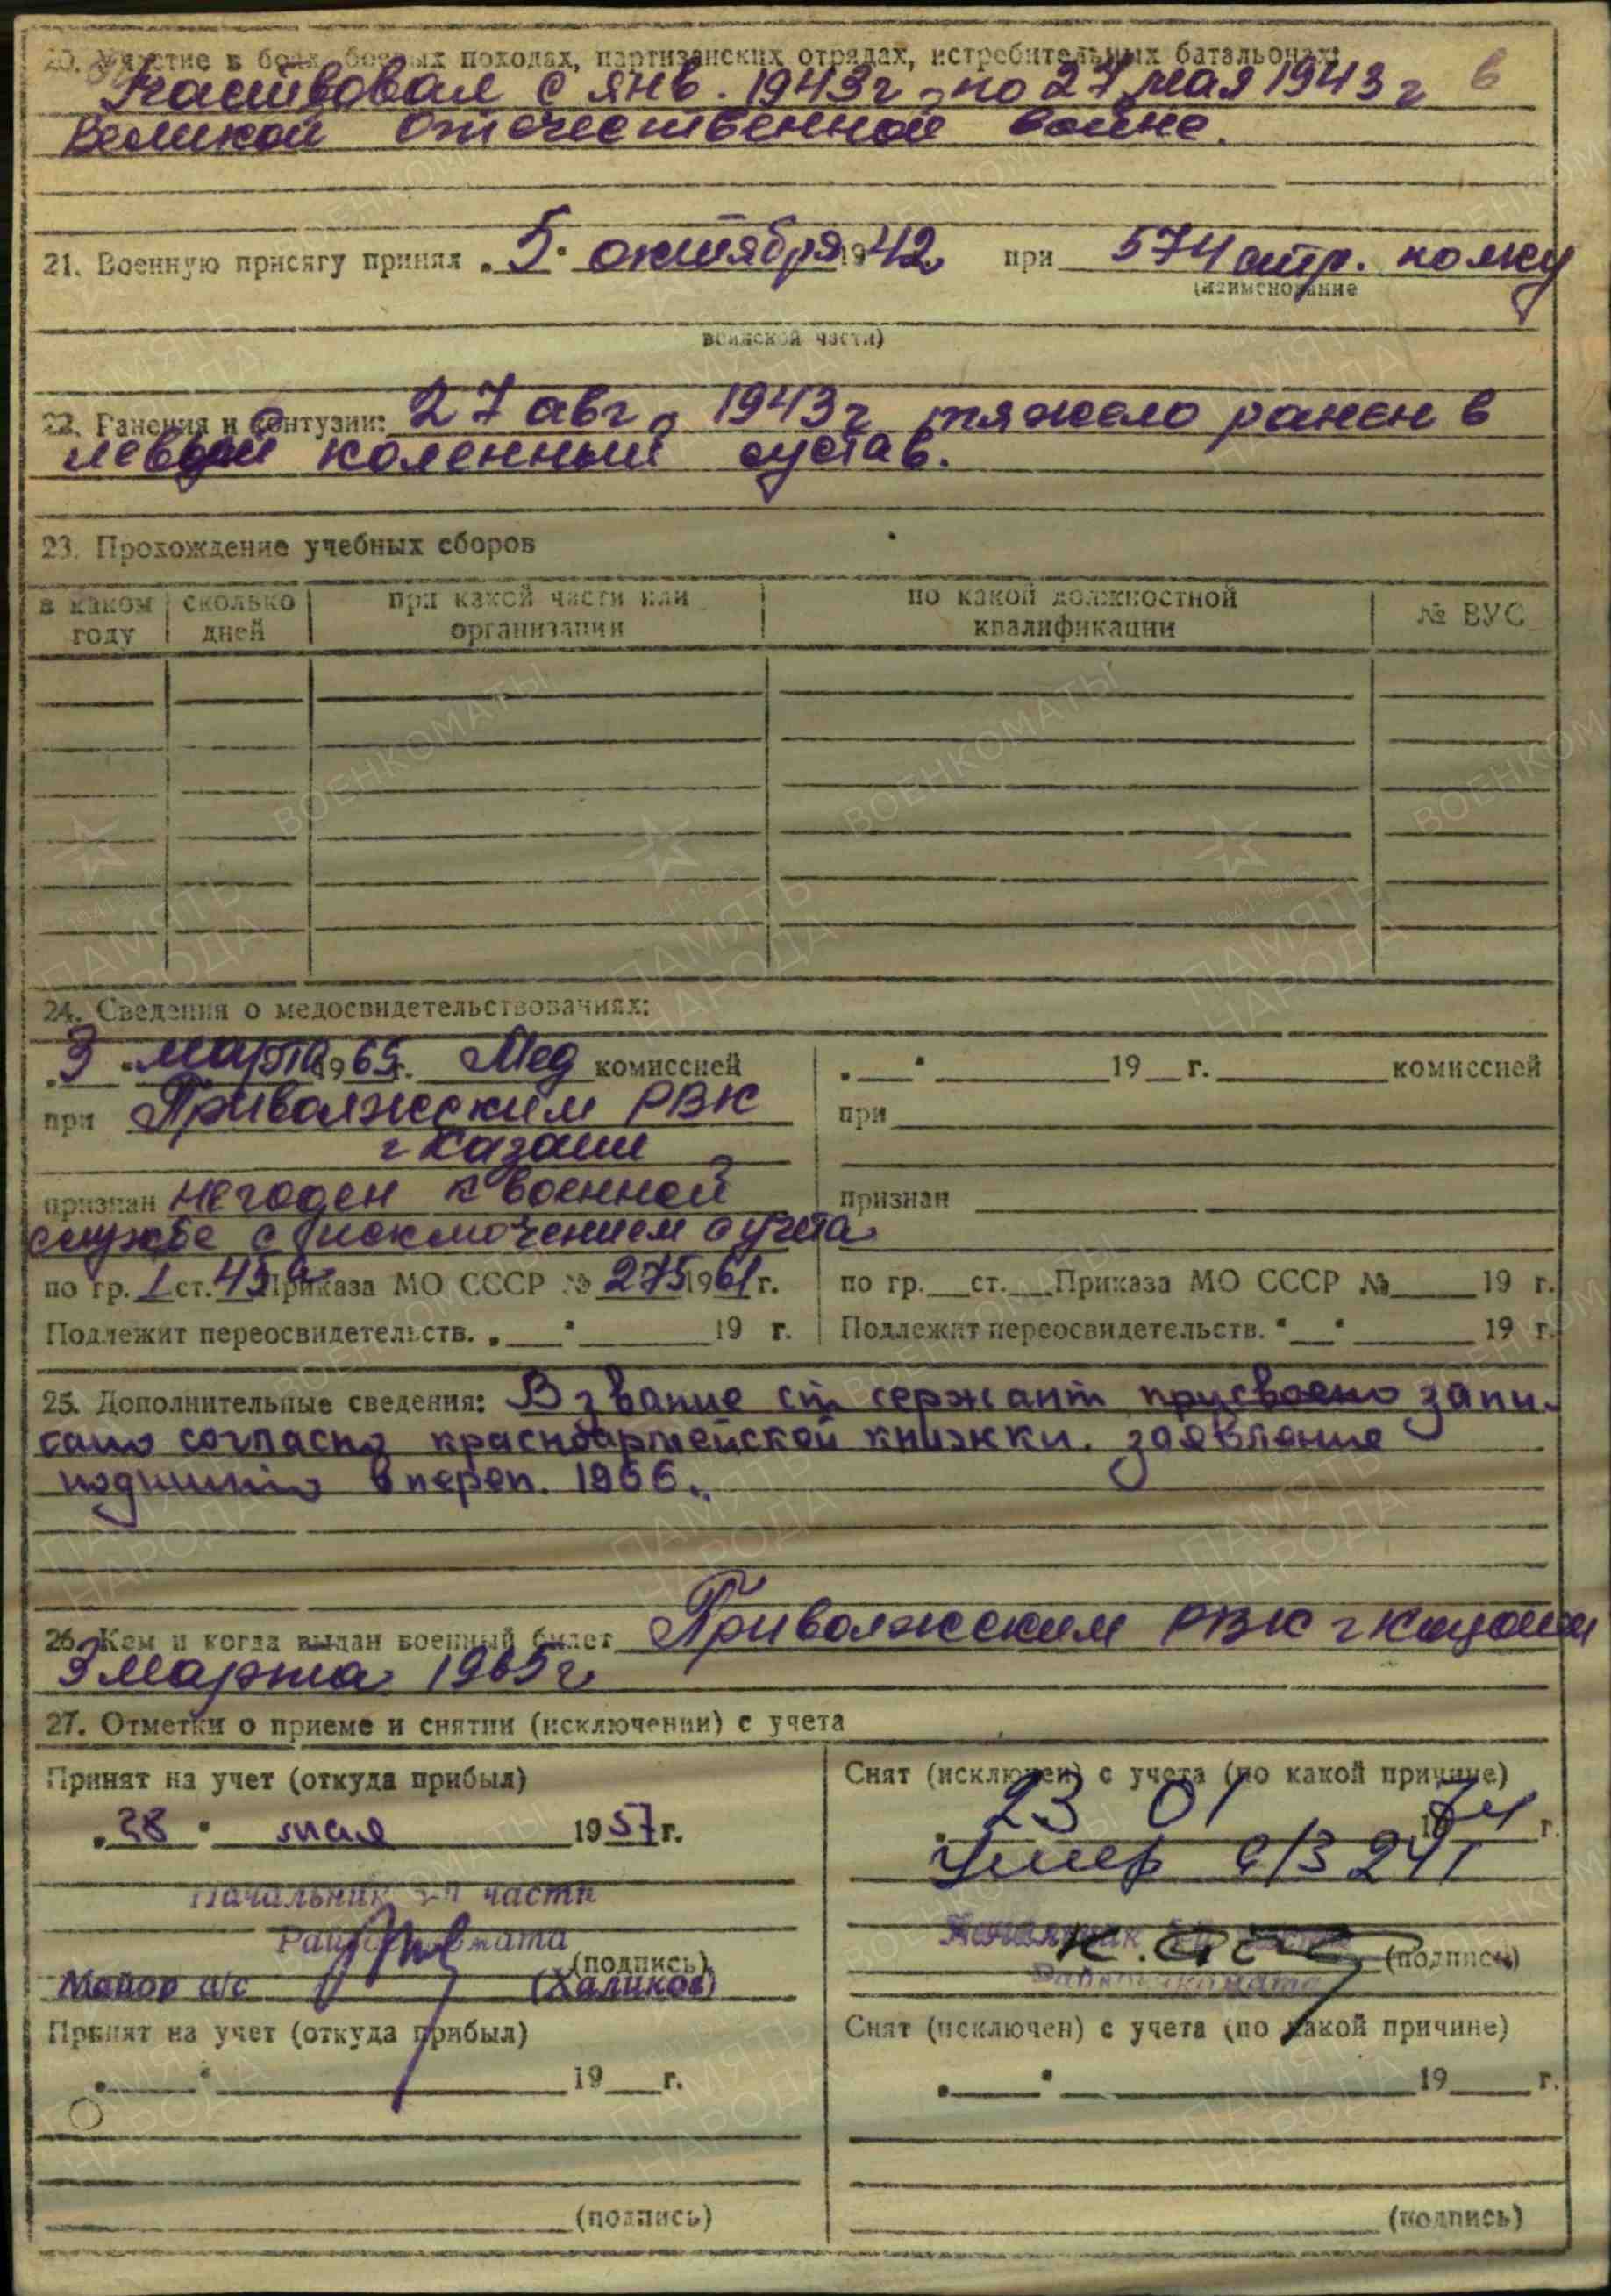 20. Участие в боях, боевых походах, партизанских отрядах, истребительных батальонах:
Участвовал с янв. 1943 г. по 27 мая 1943 г в
Великой Отечественной войне.
21. Военную присягу принял „5" октября 1942 при 574 стр. полку
(наименование
воинской части)
22. Ранения и контузии: 27 авг. 1943 г тяжело ранен в
левый коленный сустав.
23. Прохождение учебных сборов
в каком году | сколько дней | при какой части или организации | по какой должностной квалификации | № ВУС
24. Сведения о медосвидетельствованиях:
„3" марта 1965 г. Мед комиссией
при Приволжским РВК
г Казани
признан негоден к военной
службе с исключением с учета
по гр. I ст. 45а Приказа МО СССР № 275 1961 г.
Подлежит переосвидетельств. „ " 19 г.
„ " 19 г. комиссией
при
признан
по гр. ст. Приказа МО СССР № 19 г.
Подлежит переосвидетельств. " " 19 г.
25. Дополнительные сведения: В звание ст сержант присвоено запи-
сано согласно красноармейской книжки. заявление
подшито в переп. 1966.
26. Кем и когда выдан военный билет Приволжским РВК г Казани
3 марта 1965 г
27. Отметки о приеме и снятии (исключении) с учета
Принят на учет (откуда прибыл)
„28" мая 1957 г.
Начальник части
Райвоенкомата
(подпись)
Майор а/с (Халиков)
Принят на учет (откуда прибыл)
„ " 19 г.
(подпись)
Снят (исключен) с учета (по какой причине)
23 01 1974 г.
Умер а/з 241
Начальник части
Райвоенкомата
(подпись)
Снят (исключен) с учета (по какой причине)
„ " 19 г.
(подпись)
ВОЕНКОМАТЫ
1941-1945
ПАМЯТЬ
НАРОДА